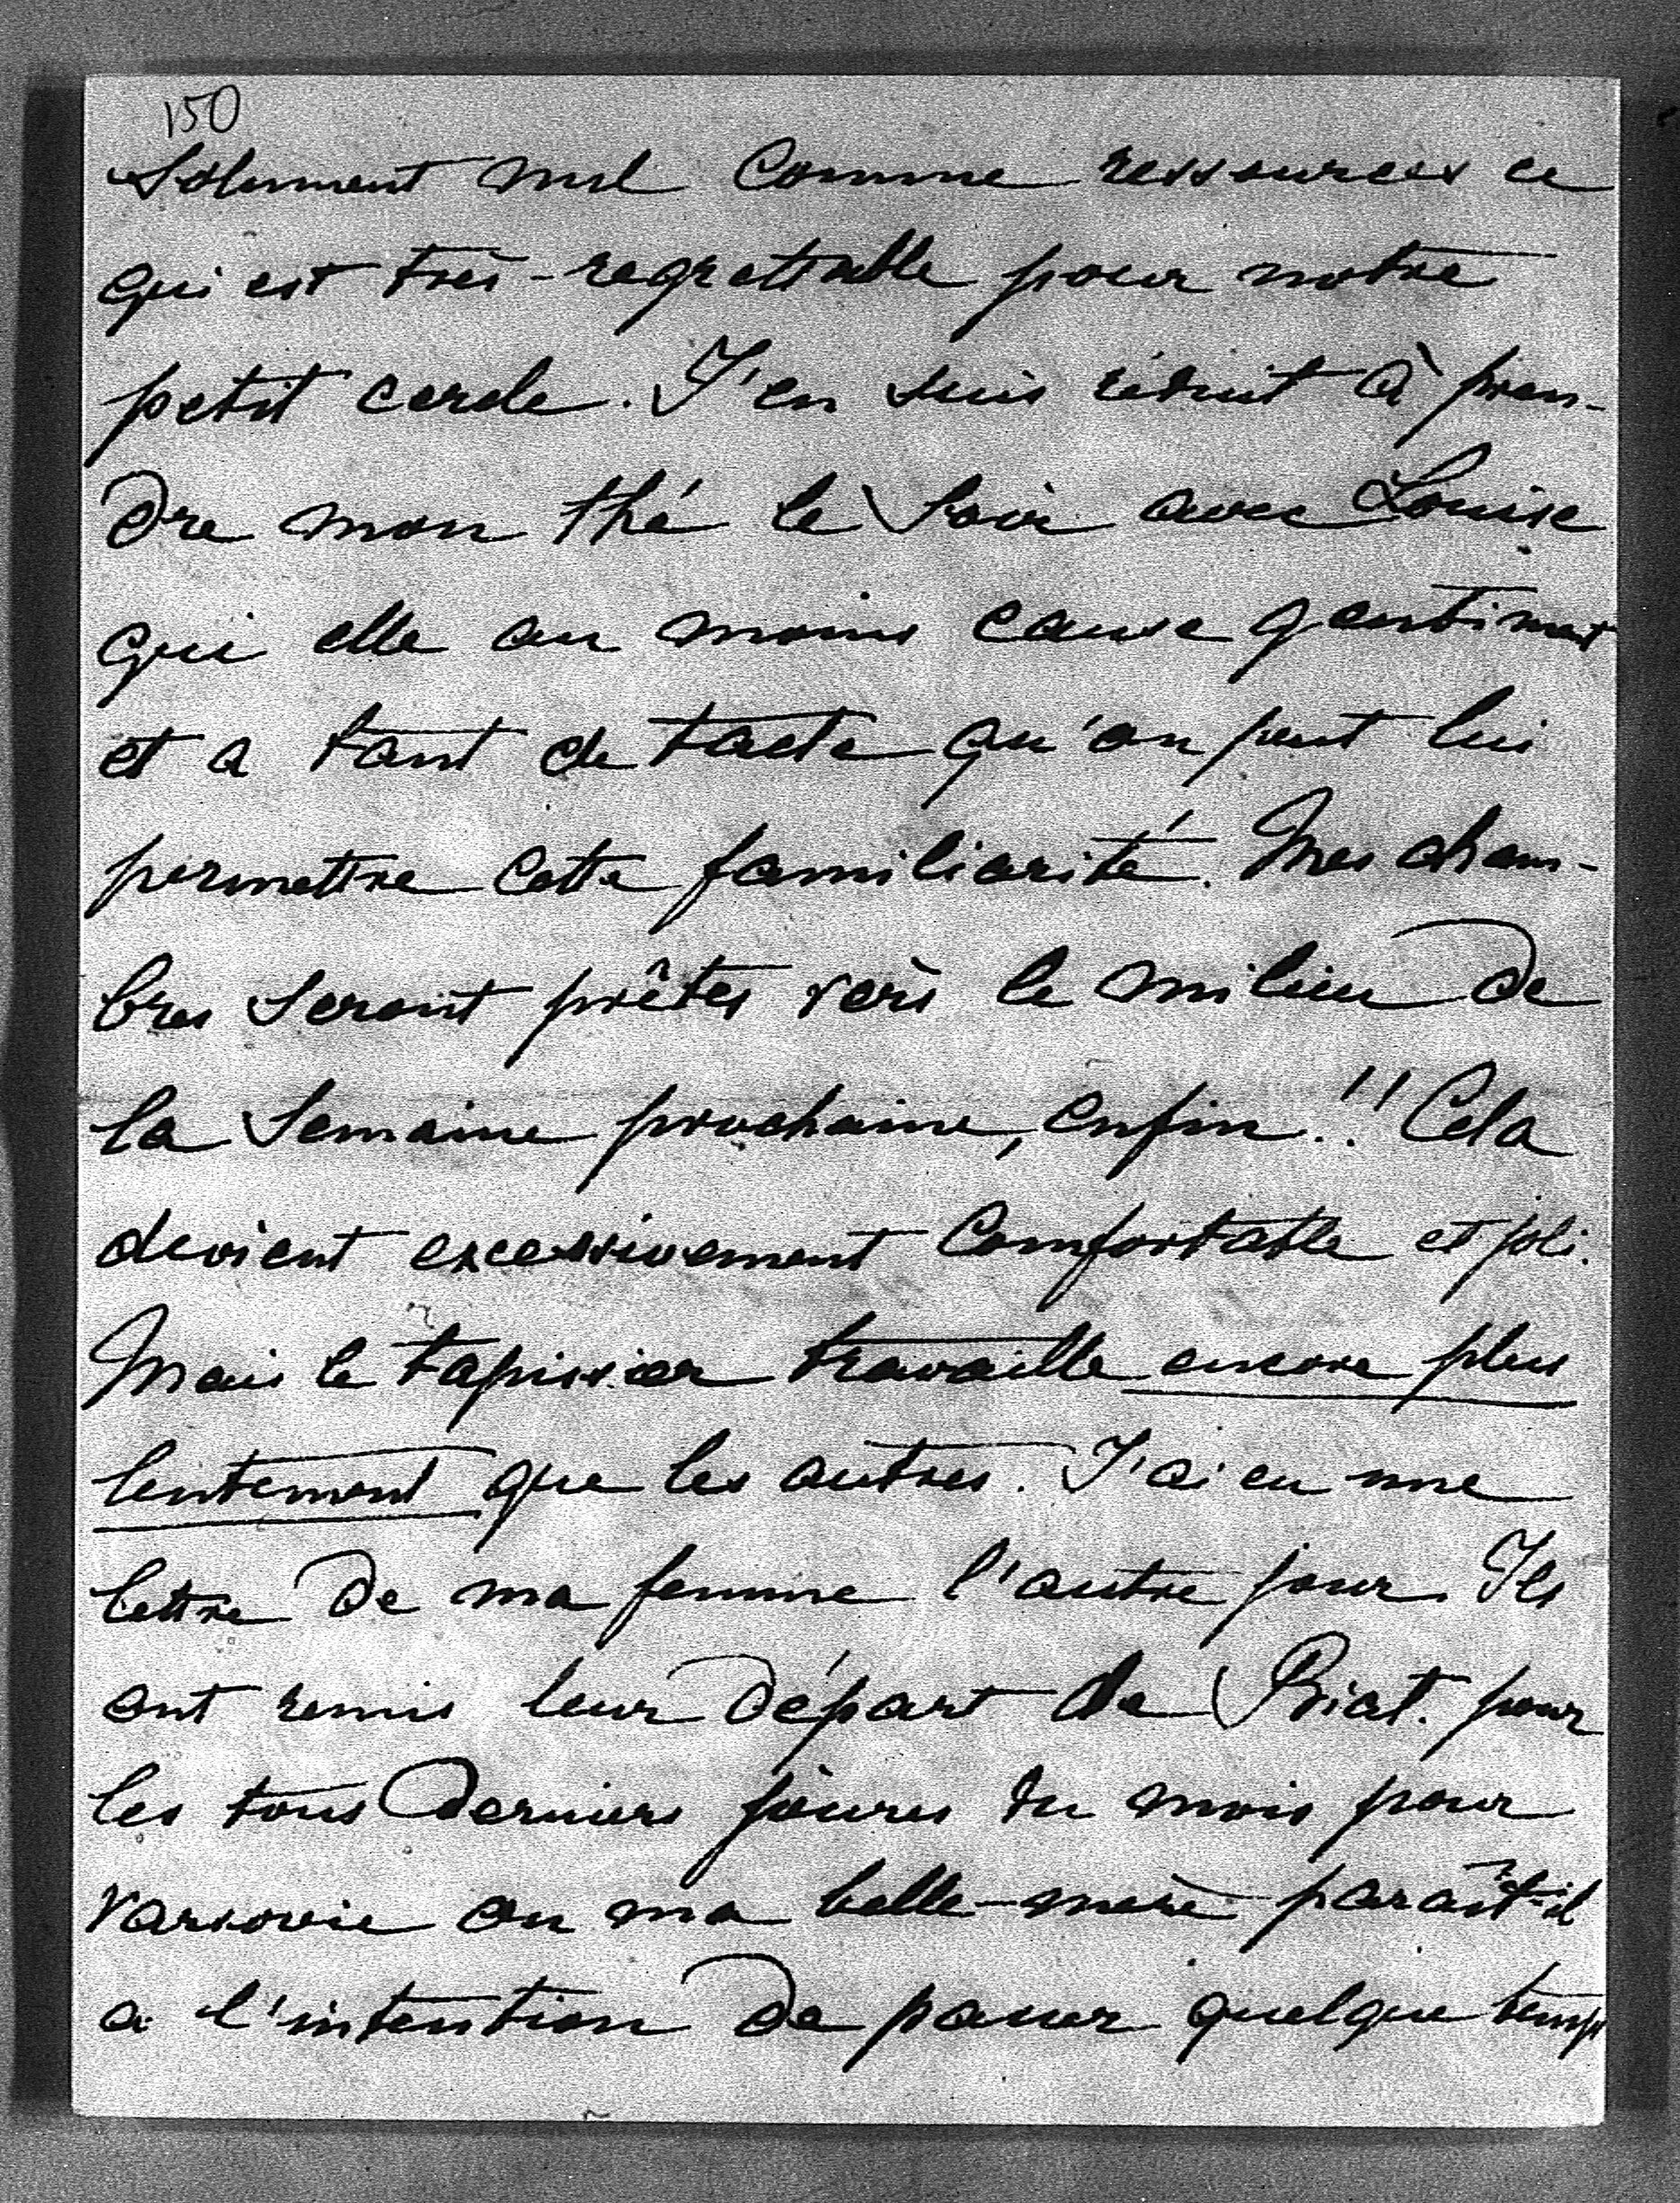 150
solument nul comme ressources ce
qui est très-regrettable pour notre
petit cercle. J'en suis réduit à pren-
dre mon thé le soir avec Louise
qui elle au moins cause gentiment
et a tant de tacte qu'on peut lui
permettre cette familiarité. Mes cham-
bres seront prêtes vers le milieu de
la semaine prochaine, enfin!! Cela
devient excessivement comfortable et joli.
Mais le tapissier travaille encore plus
lentement que les autres. J'ai eu une
lettre de ma femme l'autre jour. Ils
ont remis leur départ de Biat. pour
les tous derniers joures du mois pour
Varsovie ou ma belle-mère paraît-il
a l'intention de passer quelque temps